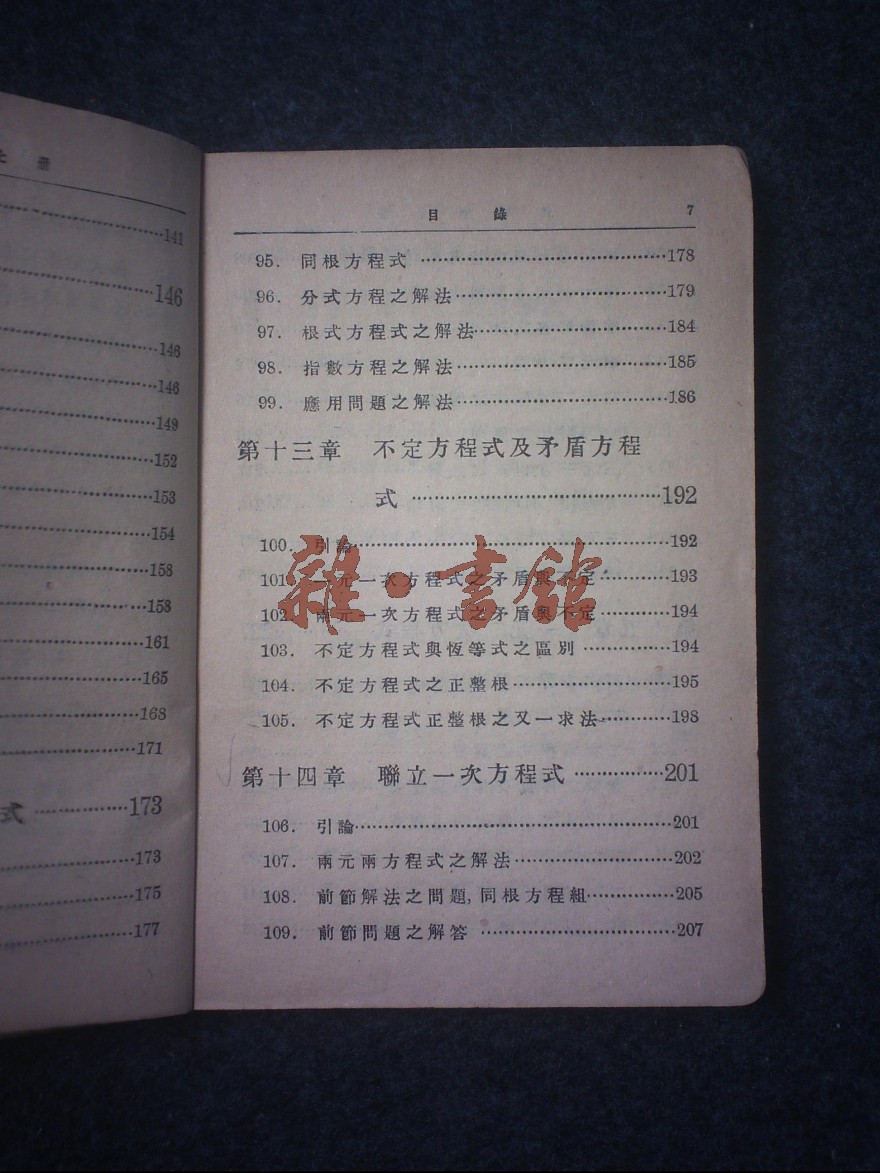 上 册
141
146
146
146
149
152
153
154
158
158
161
165
168
171
式 173
173
175
177
目 錄 7
95. 同根方程式 178
96. 分式方程之解法 179
97. 根式方程式之解法 184
98. 指數方程之解法 185
99. 應用問題之解法 186
第十三章 不定方程式及矛盾方程
式 192
100. 引論 192
101. 一元一次方程式之矛盾與不定 193
102. 兩元一次方程式之矛盾與不定 194
103. 不定方程式與恆等式之區別 194
104. 不定方程式之正整根 195
105. 不定方程式正整根之又一求法 198
第十四章 聯立一次方程式 201
106. 引論 201
107. 兩元兩方程式之解法 202
108. 前節解法之問題,同根方程組 205
109. 前節問題之解答 207
雜·書館